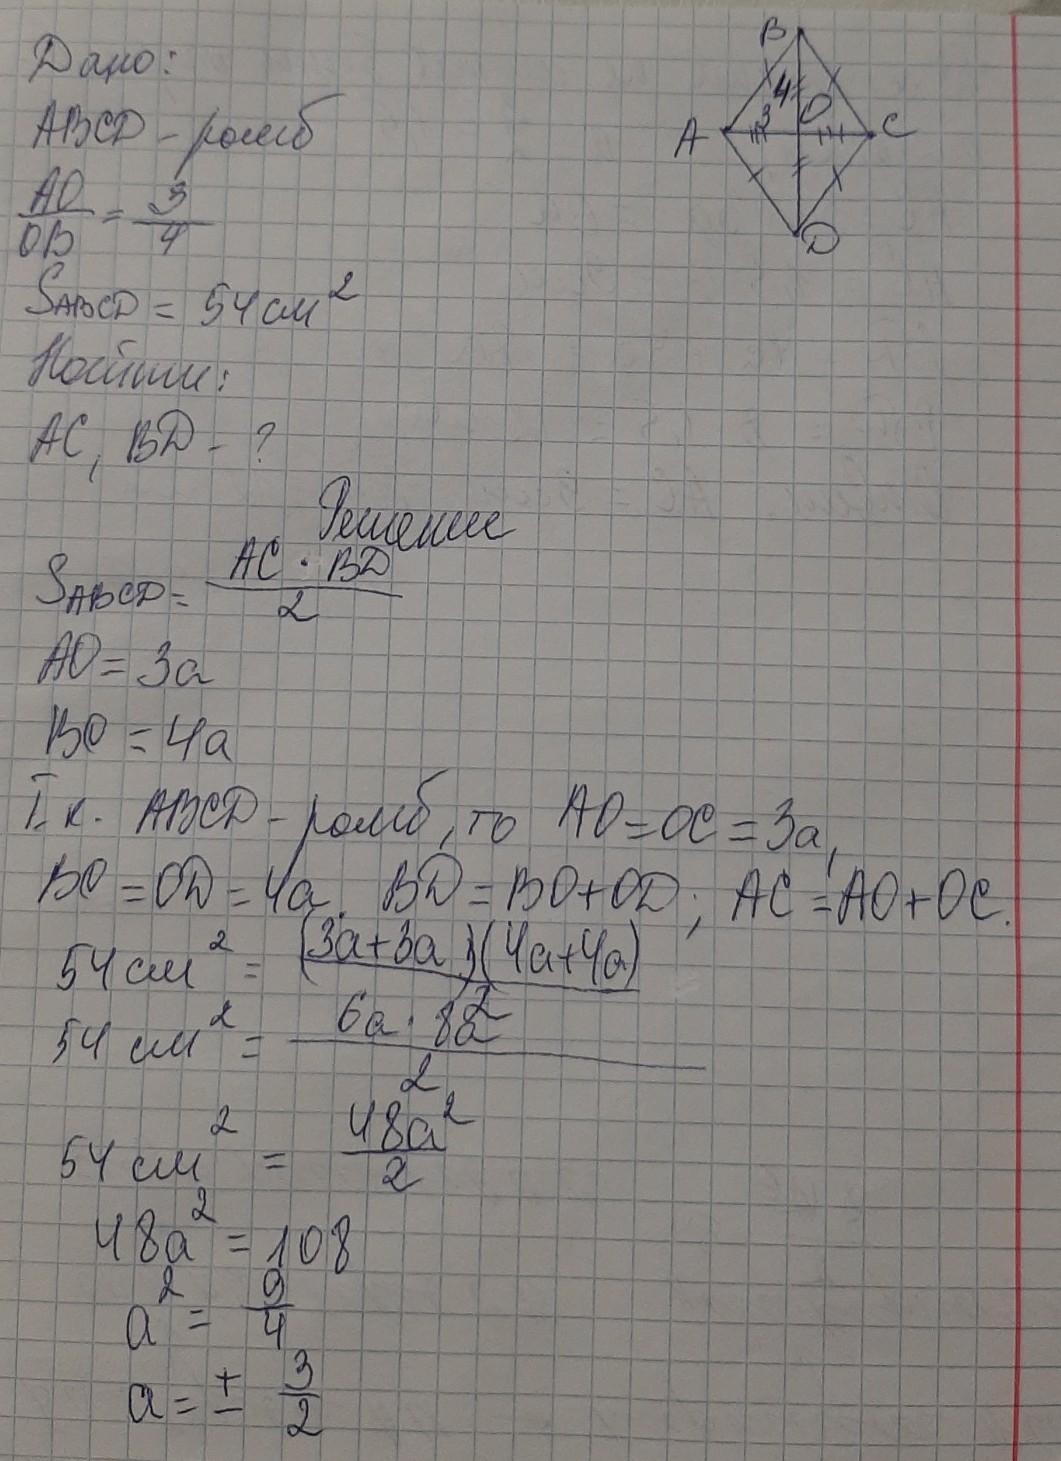 Дано:
ABCD - ромб
AO/OB = 3/4
S_ABCD = 54 см²
Найти:
AC, BD - ?
B
4
3
O
A
C
D
Решение
S_ABCD = AC · BD / 2
AO = 3a
BO = 4a
Т.к. ABCD - ромб, то AO = OC = 3a,
BO = OD = 4a. BD = BO + OD; AC = AO + OC.
54 см² = (3a+3a)(4a+4a) / 2
54 см² = 6a · 8a / 2
54 см² = 48a² / 2
48a² = 108
a² = 9/4
a = ± 3/2